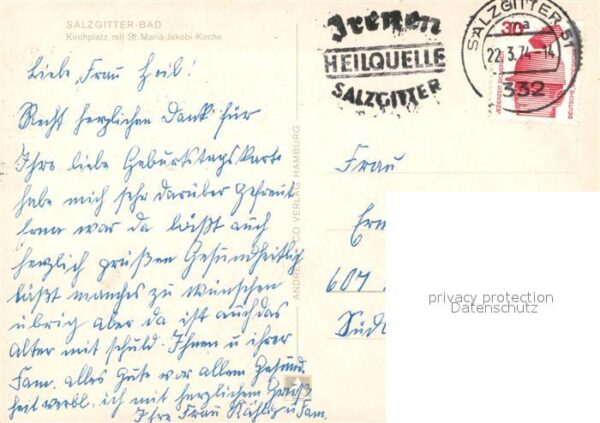 SALZGITTER-BAD
Kirchplatz mit St. Mariä-Jakobi-Kirche
Liebe Frau Heil!
Recht herzlichen Dank für
Ihre liebe Geburtstagskarte
habe mich sehr darüber gefreut
Erna war da läßt auch
herzlich grüßen Gesundheitlich
läßt manches zu wünschen
übrig aber da ist auch das
Alter mit schuld. Ihnen u ihrer
Fam. alles Gute vor allem Gesund.
heit verbl. ich mit herzlichem Gruß
Ihre Frau u Fam.
ANDRE CO VERLAG HAMBURG
Irenen
HEILQUELLE
SALZGITTER
SALZGITTER 51
a
22.3.74-14
332
30
JEDERZEIT
DEUTSCHE
Frau
Ern
607
Süd
privacy protection
Datenschutz